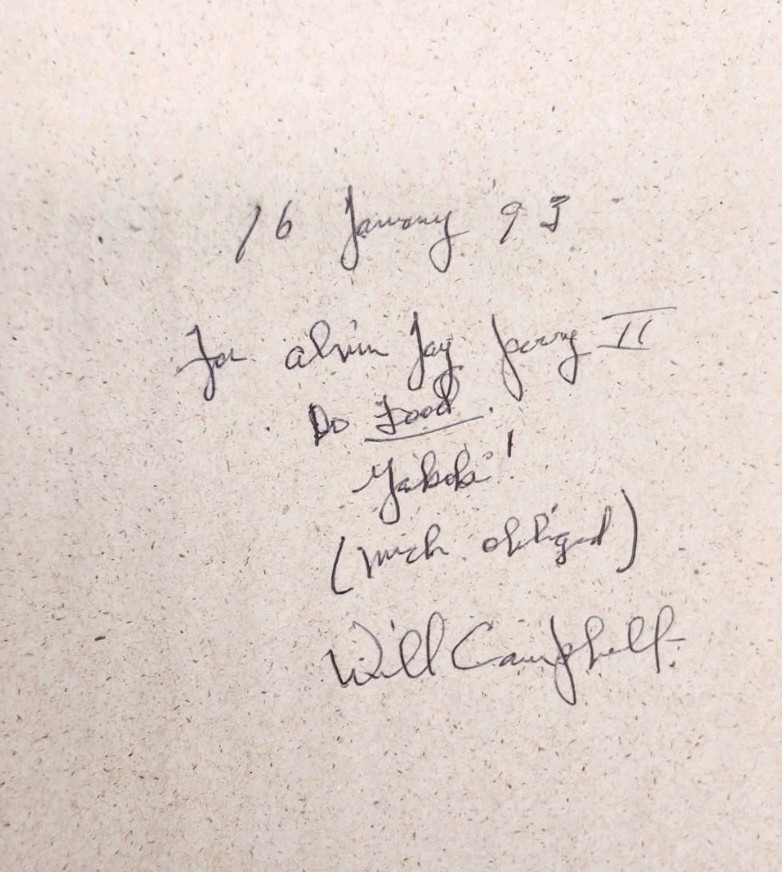 16 January '93
For Alvin Jay II
Do Good.
Yakoke!
(much obliged)
Will Campbell.